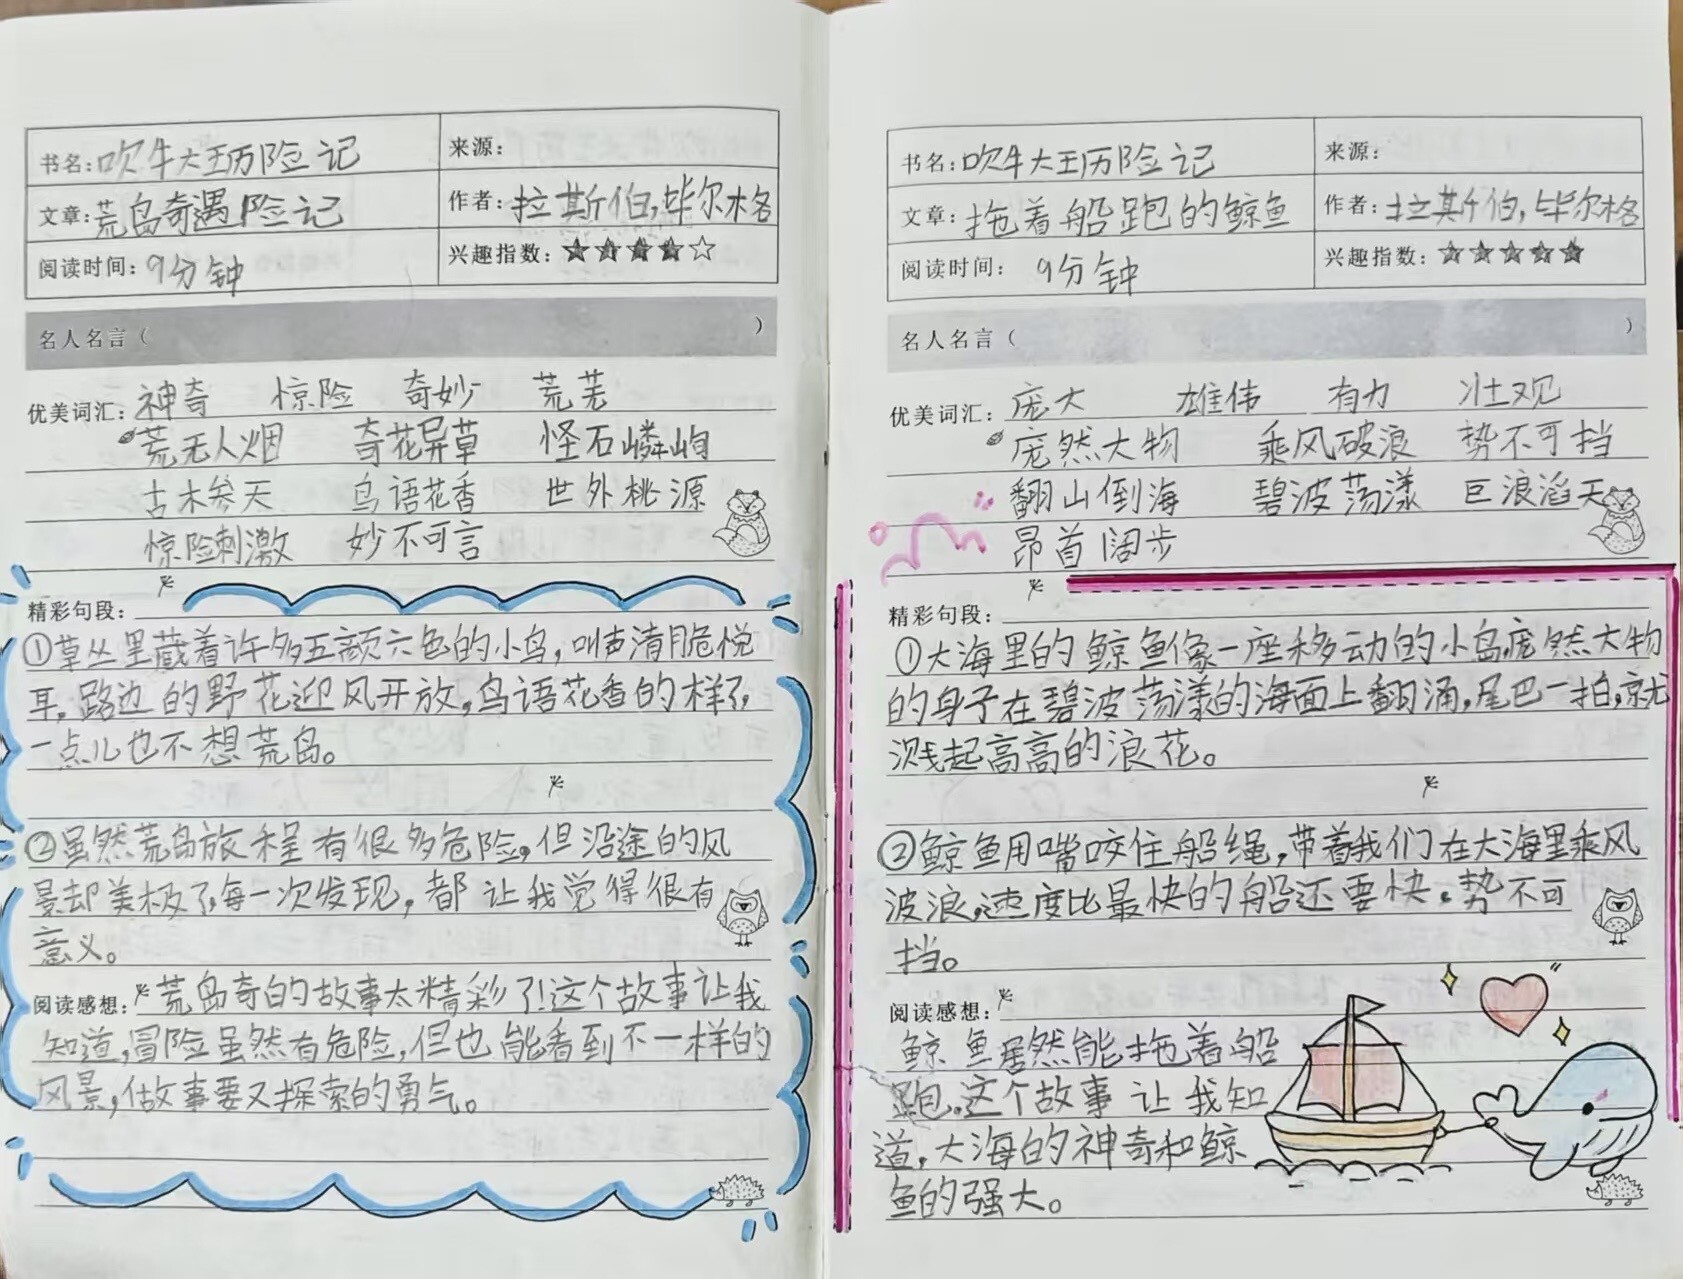 书名:吹牛大王历险记
来源:
文章:荒岛奇遇险记
作者:拉斯伯,毕尔格
阅读时间:9分钟
兴趣指数:★★★★☆
名人名言( )
优美词汇:神奇 惊险 奇妙 荒芜
荒无人烟 奇花异草 怪石嶙峋
古木参天 鸟语花香 世外桃源
惊险刺激 妙不可言
精彩句段:
①草丛里藏着许多五颜六色的小鸟,叫声清脆悦
耳,路边的野花迎风开放,鸟语花香的样子,
一点儿也不想荒岛。
②虽然荒岛旅程有很多危险,但沿途的风
景却美极了,每一次发现,都让我觉得很有
意义。
阅读感想:荒岛奇的故事太精彩了!这个故事让我
知道,冒险虽然有危险,但也能看到不一样的
风景,做故事要又探索的勇气。
书名:吹牛大王历险记
来源:
文章:拖着船跑的鲸鱼
作者:拉斯伯,毕尔格
阅读时间:9分钟
兴趣指数:★★★★★
名人名言( )
优美词汇:庞大 雄伟 有力 壮观
庞然大物 乘风破浪 势不可挡
翻山倒海 碧波荡漾 巨浪滔天
昂首阔步
精彩句段:
①大海里的鲸鱼像一座移动的小岛,庞然大物
的身子在碧波荡漾的海面上翻涌,尾巴一拍,就
溅起高高的浪花。
②鲸鱼用嘴咬住船绳,带着我们在大海里乘风
波浪,速度比最快的船还要快,势不可
挡。
阅读感想:
鲸鱼居然能拖着船
跑,这个故事让我知
道,大海的神奇和鲸
鱼的强大。